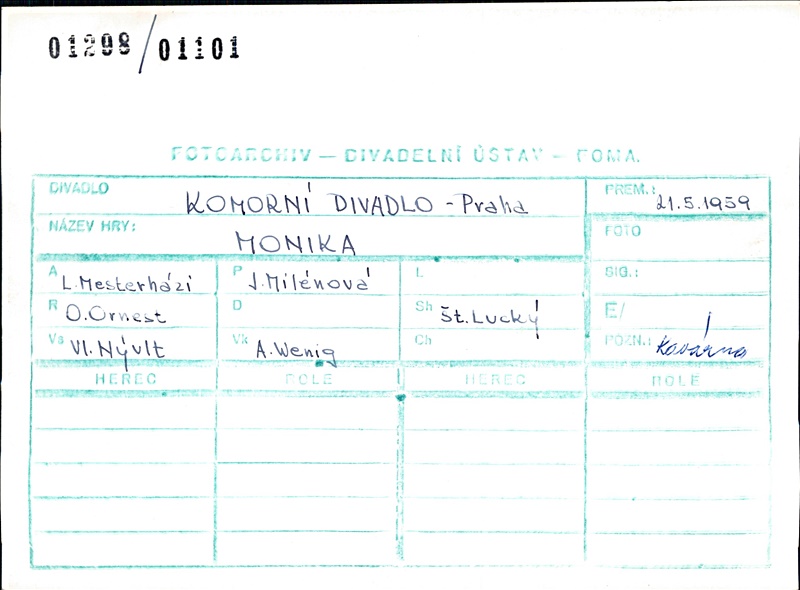 01298/01101
FOTOARCHIV — DIVADELNÍ ÚSTAV — FOMA.
DIVADLO KOMORNÍ DIVADLO - Praha PREM.: 21.5.1959
NÁZEV HRY: MONIKA FOTO
A L. Mesterházi P J. Milénová L SIG.:
R O. Ornest D Sh Št. Lucký E/
Vs Vl. Nývlt Vk A. Wenig Ch POZN.: Kasárna
HEREC ROLE HEREC ROLE